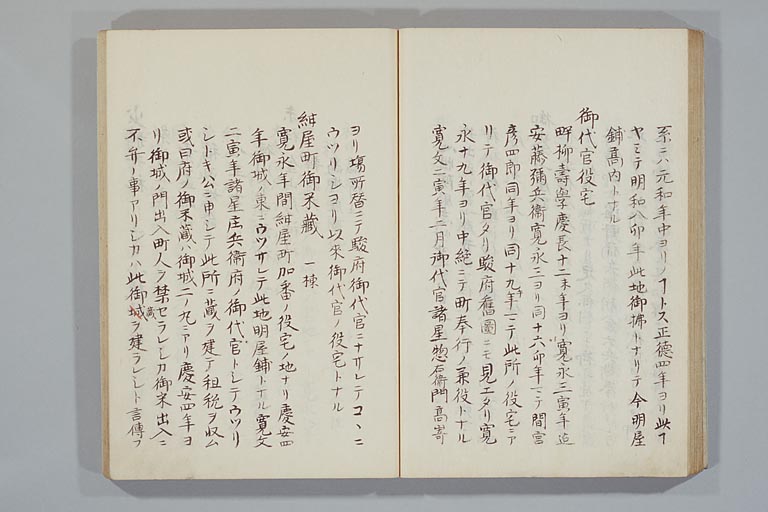 系ニハ元和年中ヨリノヿトス正徳四年ヨリ此ヿ
ヤミテ明和八卯年此地御拂トナリテ今明屋
鋪髙内トナル
御代官役宅
畔柳壽學慶長十二未年ヨリ寛永三寅年迠
安藤彌兵衛寛永三ヨリ同十六卯年マテ間宮
彦四郎同年ヨリ同十九年マテ此所ノ役宅ニア
リテ御代官タリ駿府舊圖ニモ見エタリ寛
永十九年ヨリ中絶ニテ町奉行ノ兼役トナル
寛文二寅年二月御代官諸星惣右衛門髙嵜
ヨリ塲所替ニテ駿府御代官ニナサレテコヽニ
ウツリシヨリ以来御代官ノ役宅トナル
紺屋町御米藏 一棟
寛永年間紺屋町加番ノ役宅ノ地ナリ慶安四
年御城ノ東ニウツサレテ此地明屋鋪トナル寛文
二寅年諸星庄兵衛府ノ御代官トシテウツリ
シトキ公ニ申シテ此所ニ藏ヲ建テ租税ヲ収ム
或曰府ノ御米藏ハ御城二ノ丸ニアリ慶安四年ヨ
リ御城ノ門出入町人ヲ禁セラレシカ御米出入ニ
不弁ノ事アリシカハ此御藏ヲ建ラレシト言傳フ